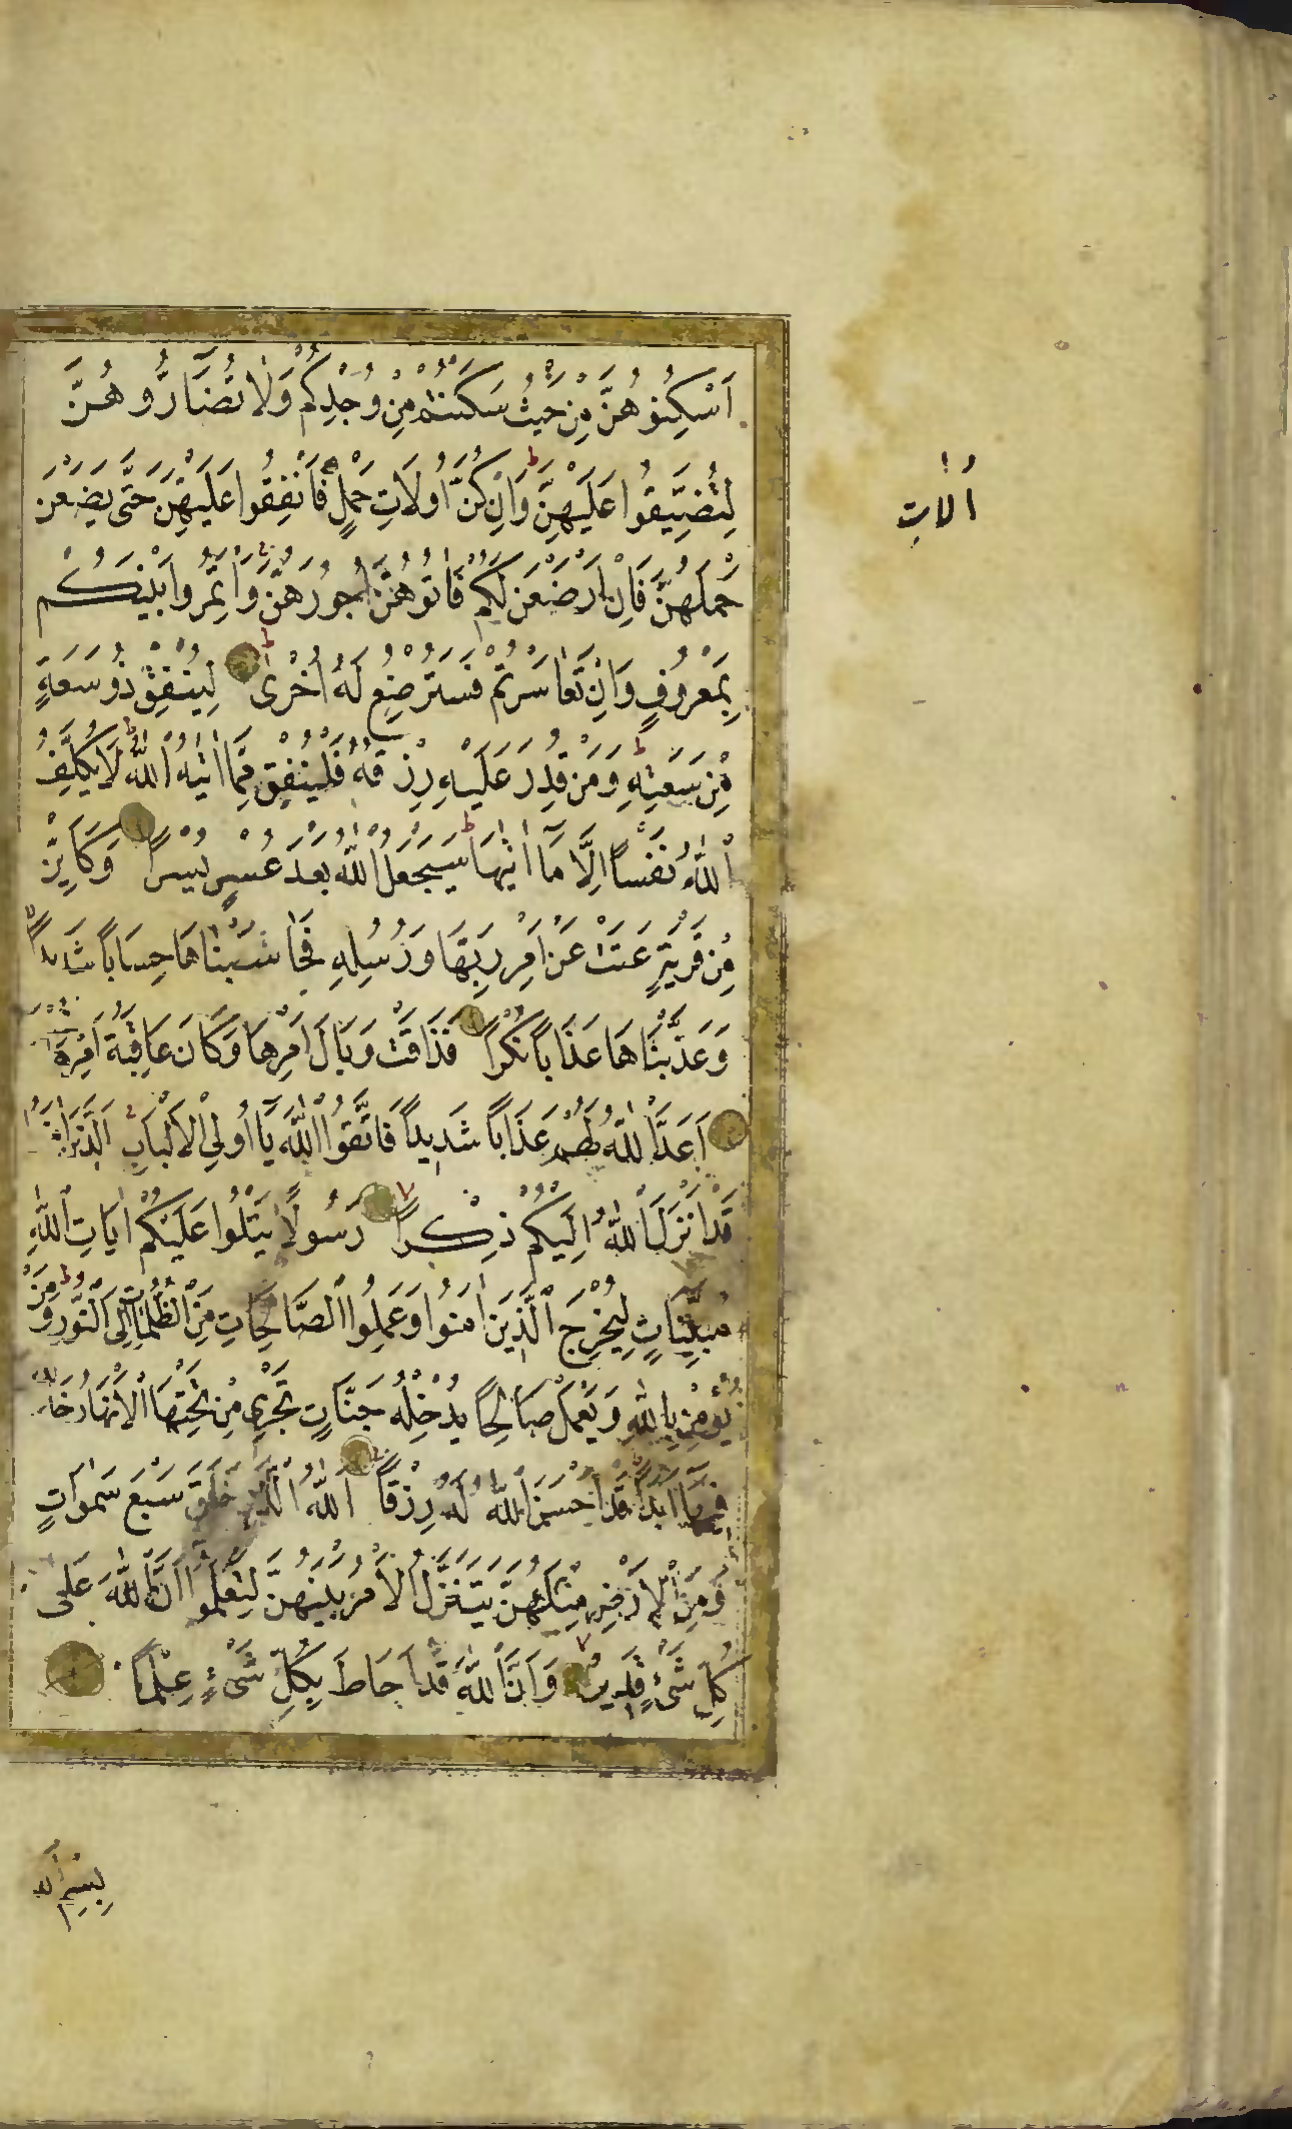 اَسْكِنُوهُنَّ مِنْ حَيْثُ سَكَنْتُمْ مِنْ وُجْدِكُمْ وَلَا تُضَارُّوهُنَّ
لِتُضَيِّقُوا عَلَيْهِنَّ وَاِنْ كُنَّ اُولَاتِ حَمْلٍ فَاَنْفِقُوا عَلَيْهِنَّ حَتّٰى يَضَعْنَ
اُلَاتِ
حَمْلَهُنَّ فَاِنْ اَرْضَعْنَ لَكُمْ فَاٰتُوهُنَّ اُجُورَهُنَّ وَاْتَمِرُوا بَيْنَكُمْ
بِمَعْرُوفٍ وَاِنْ تَعَاسَرْتُمْ فَسَتُرْضِعُ لَهُ اُخْرٰى لِيُنْفِقْ ذُو سَعَةٍ
مِنْ سَعَتِهِ وَمَنْ قُدِرَ عَلَيْهِ رِزْقُهُ فَلْيُنْفِقْ مِمَّا اٰتٰيهُ اللّٰهُ لَا يُكَلِّفُ
اللّٰهُ نَفْسًا اِلَّا مَا اٰتٰيهَا سَيَجْعَلُ اللّٰهُ بَعْدَ عُسْرٍ يُسْرًا وَكَاَيِّنْ
مِنْ قَرْيَةٍ عَتَتْ عَنْ اَمْرِ رَبِّهَا وَرُسُلِهِ فَحَاسَبْنَاهَا حِسَابًا شَدِيدًا
وَعَذَّبْنَاهَا عَذَابًا نُكْرًا فَذَاقَتْ وَبَالَ اَمْرِهَا وَكَانَ عَاقِبَةُ اَمْرِهَا
اَعَدَّ اللّٰهُ لَهُمْ عَذَابًا شَدِيدًا فَاتَّقُوا اللّٰهَ يَا اُولِي الْاَلْبَابِ اَلَّذِينَ اٰمَنُوا
قَدْ اَنْزَلَ اللّٰهُ اِلَيْكُمْ ذِكْرًا رَسُولًا يَتْلُوا عَلَيْكُمْ اٰيَاتِ اللّٰهِ
مُبَيِّنَاتٍ لِيُخْرِجَ الَّذِينَ اٰمَنُوا وَعَمِلُوا الصَّالِحَاتِ مِنَ الظُّلُمَاتِ اِلَى النُّورِ وَمَنْ
يُؤْمِنْ بِاللّٰهِ وَيَعْمَلْ صَالِحًا يُدْخِلْهُ جَنَّاتٍ تَجْرِي مِنْ تَحْتِهَا الْاَنْهَارُ
فِيهَا اَبَدًا قَدْ اَحْسَنَ اللّٰهُ لَهُ رِزْقًا اَللّٰهُ الَّذِي خَلَقَ سَبْعَ سَمٰوَاتٍ
وَمِنَ الْاَرْضِ مِثْلَهُنَّ يَتَنَزَّلُ الْاَمْرُ بَيْنَهُنَّ لِتَعْلَمُوا اَنَّ اللّٰهَ عَلٰى
كُلِّ شَيْءٍ قَدِيرٌ وَاَنَّ اللّٰهَ قَدْ اَحَاطَ بِكُلِّ شَيْءٍ عِلْمًا
بِسْمِ